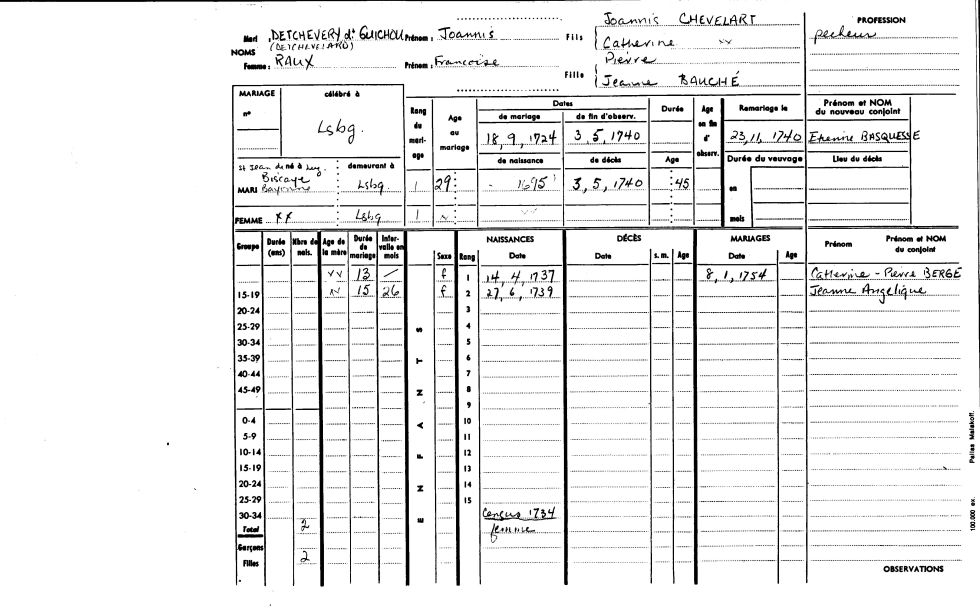 Joannis CHEVELART
PROFESSION
Mari DETCHEVERY dt GUICHOU Prénom : Joannis Fils
pecheur
(DETCHEVELARD)
Catherine vv
NOMS
Pierre
Femme : RAUX Prénom : Francoise
Fille Jeanne BAUCHÉ
MARIAGE célébré à
Rang du mari-age Age au mariage Dates Durée Age en fin d' observ. Remariage le Prénom et NOM du nouveau conjoint
n° de mariage de fin d'observ.
Lsbg. 18, 9, 1724 3, 5, 1740 23, 11, 1740 Etienne BASQUESSE
de naissance de décès Age Durée du veuvage Lieu du décès
St Jean de né à Luz. demeurant à
Biscaye
MARI Bayonne Lsbg. 1 29 - 1695 3, 5, 1740 45 en
vv
FEMME xx Lsbg 1 mois
Groupe Durée (ans) Nbre de nais. Age de la mère Durée de mariage Inter-valle en mois Sexe Rang NAISSANCES Date DÉCÈS Date s. m. Age MARIAGES Date Age Prénom Prénom et NOM du conjoint
vv 13 / f 1 14, 4, 1737 8, 1, 1754 Catherine - Pierre BERGÉ
15-19 15 26 f 2 27, 6, 1739 Jeanne Angelique
20-24 3
25-29 4
30-34 5
35-39 6
40-44 7
45-49 8
9
0-4 10
5-9 11
10-14 12
15-19 13
20-24 14
25-29 15
30-34 Census 1734
Total 2 femme
Garçons
Filles 2
OBSERVATIONS
E N F A N T S
100.000 ex. Pallas Malakoff.